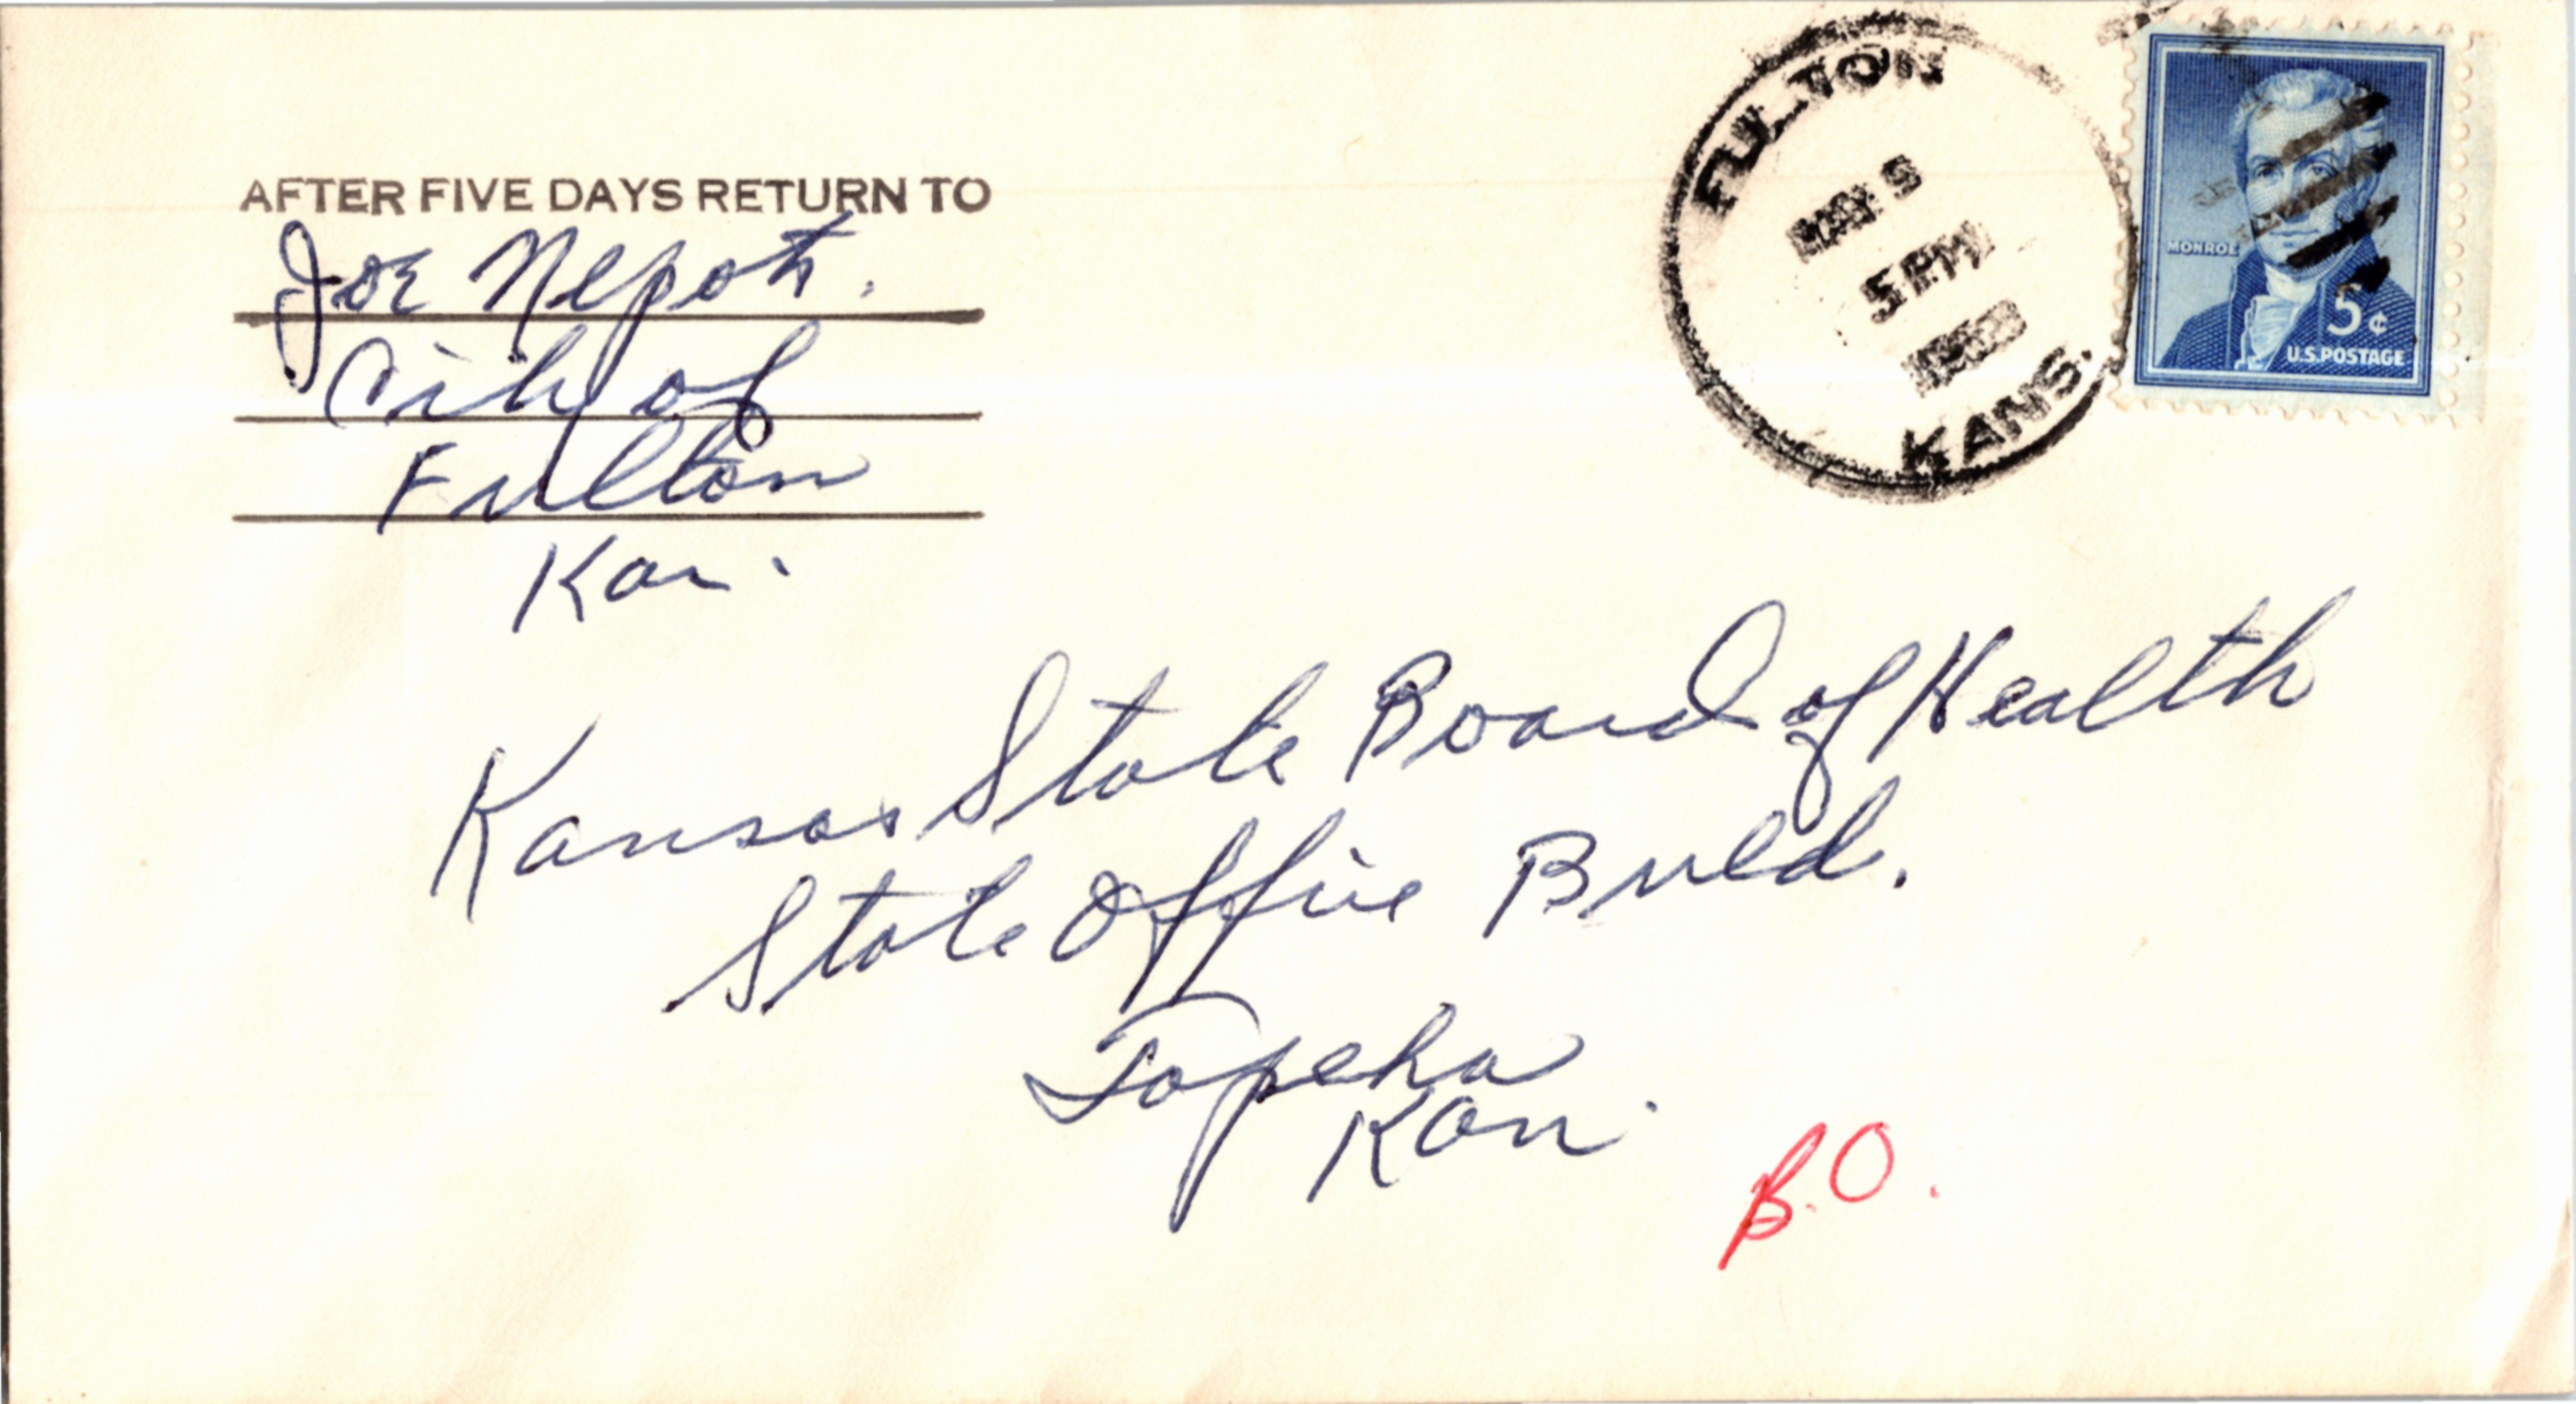 AFTER FIVE DAYS RETURN TO
Joe
City of
Fulton
Kan.
FULTON
MAY 9
5 PM
KANS.
MONROE
5¢
U.S. POSTAGE
Kansas State Board of Health
State Office Buld.
Topeka
Kan.
B.O.